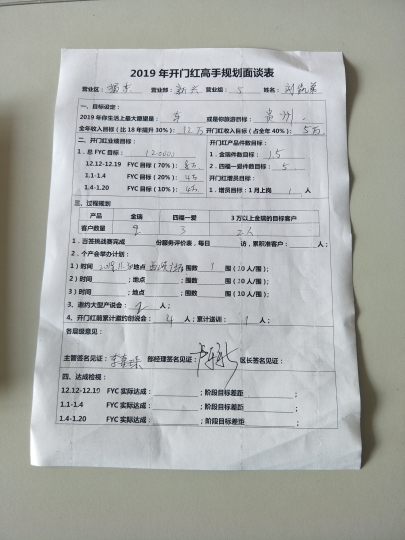 2019 年开门红高手规划面谈表
营业区： 营业部： 营业组：5 姓名：
一、目标设定：
2019 年你生活上最大愿望是：车 或是你旅游目标：贵州.
全年收入目标（比 18 年提升 30%）：12万 开门红收入目标（占全年 40%）：5万
二、开门红业绩目标： 开门红产品件数目标：
1．总 FYC 目标：12000 1．金瑞件数目标：15
12.12-12.19 FYC 目标（70%）：8万 2．四福一爱件数目标：5
1.1-1.4 FYC 目标（20%）：4万 开门红增员目标：
1.4-1.20 FYC 目标（10%）：4万 1．增员目标：1 月上岗 1 人
三、过程规划
产品 金瑞 四福一爱 3 万以上金瑞的目标客户
客户数量 9 3 2人
1．百签挑战赛完成 份服务评价表，每日 访，累积准客户： 人；
2．个产会举办计划：
1）时间 地点 围数 1 围（10 人/围）；
2）时间 ；地点 ；围数 围（10 人/围）；
3）时间 ；地点 ；围数 围（10 人/围）；
3、邀约大型产说会： 2 人；
4、开门红前累计邀约创说会： 4 人；累计送训： 1 人；
各层级意见：
主管签名见证： 部经理签名见证： 区长签名见证：
四、达成检视：
12.12-12.19 FYC 实际达成： ；阶段目标差距： ；
1.1-1.4 FYC 实际达成： ；阶段目标差距： ；
1.4-1.20 FYC 实际达成： ；阶段目标差距： ；